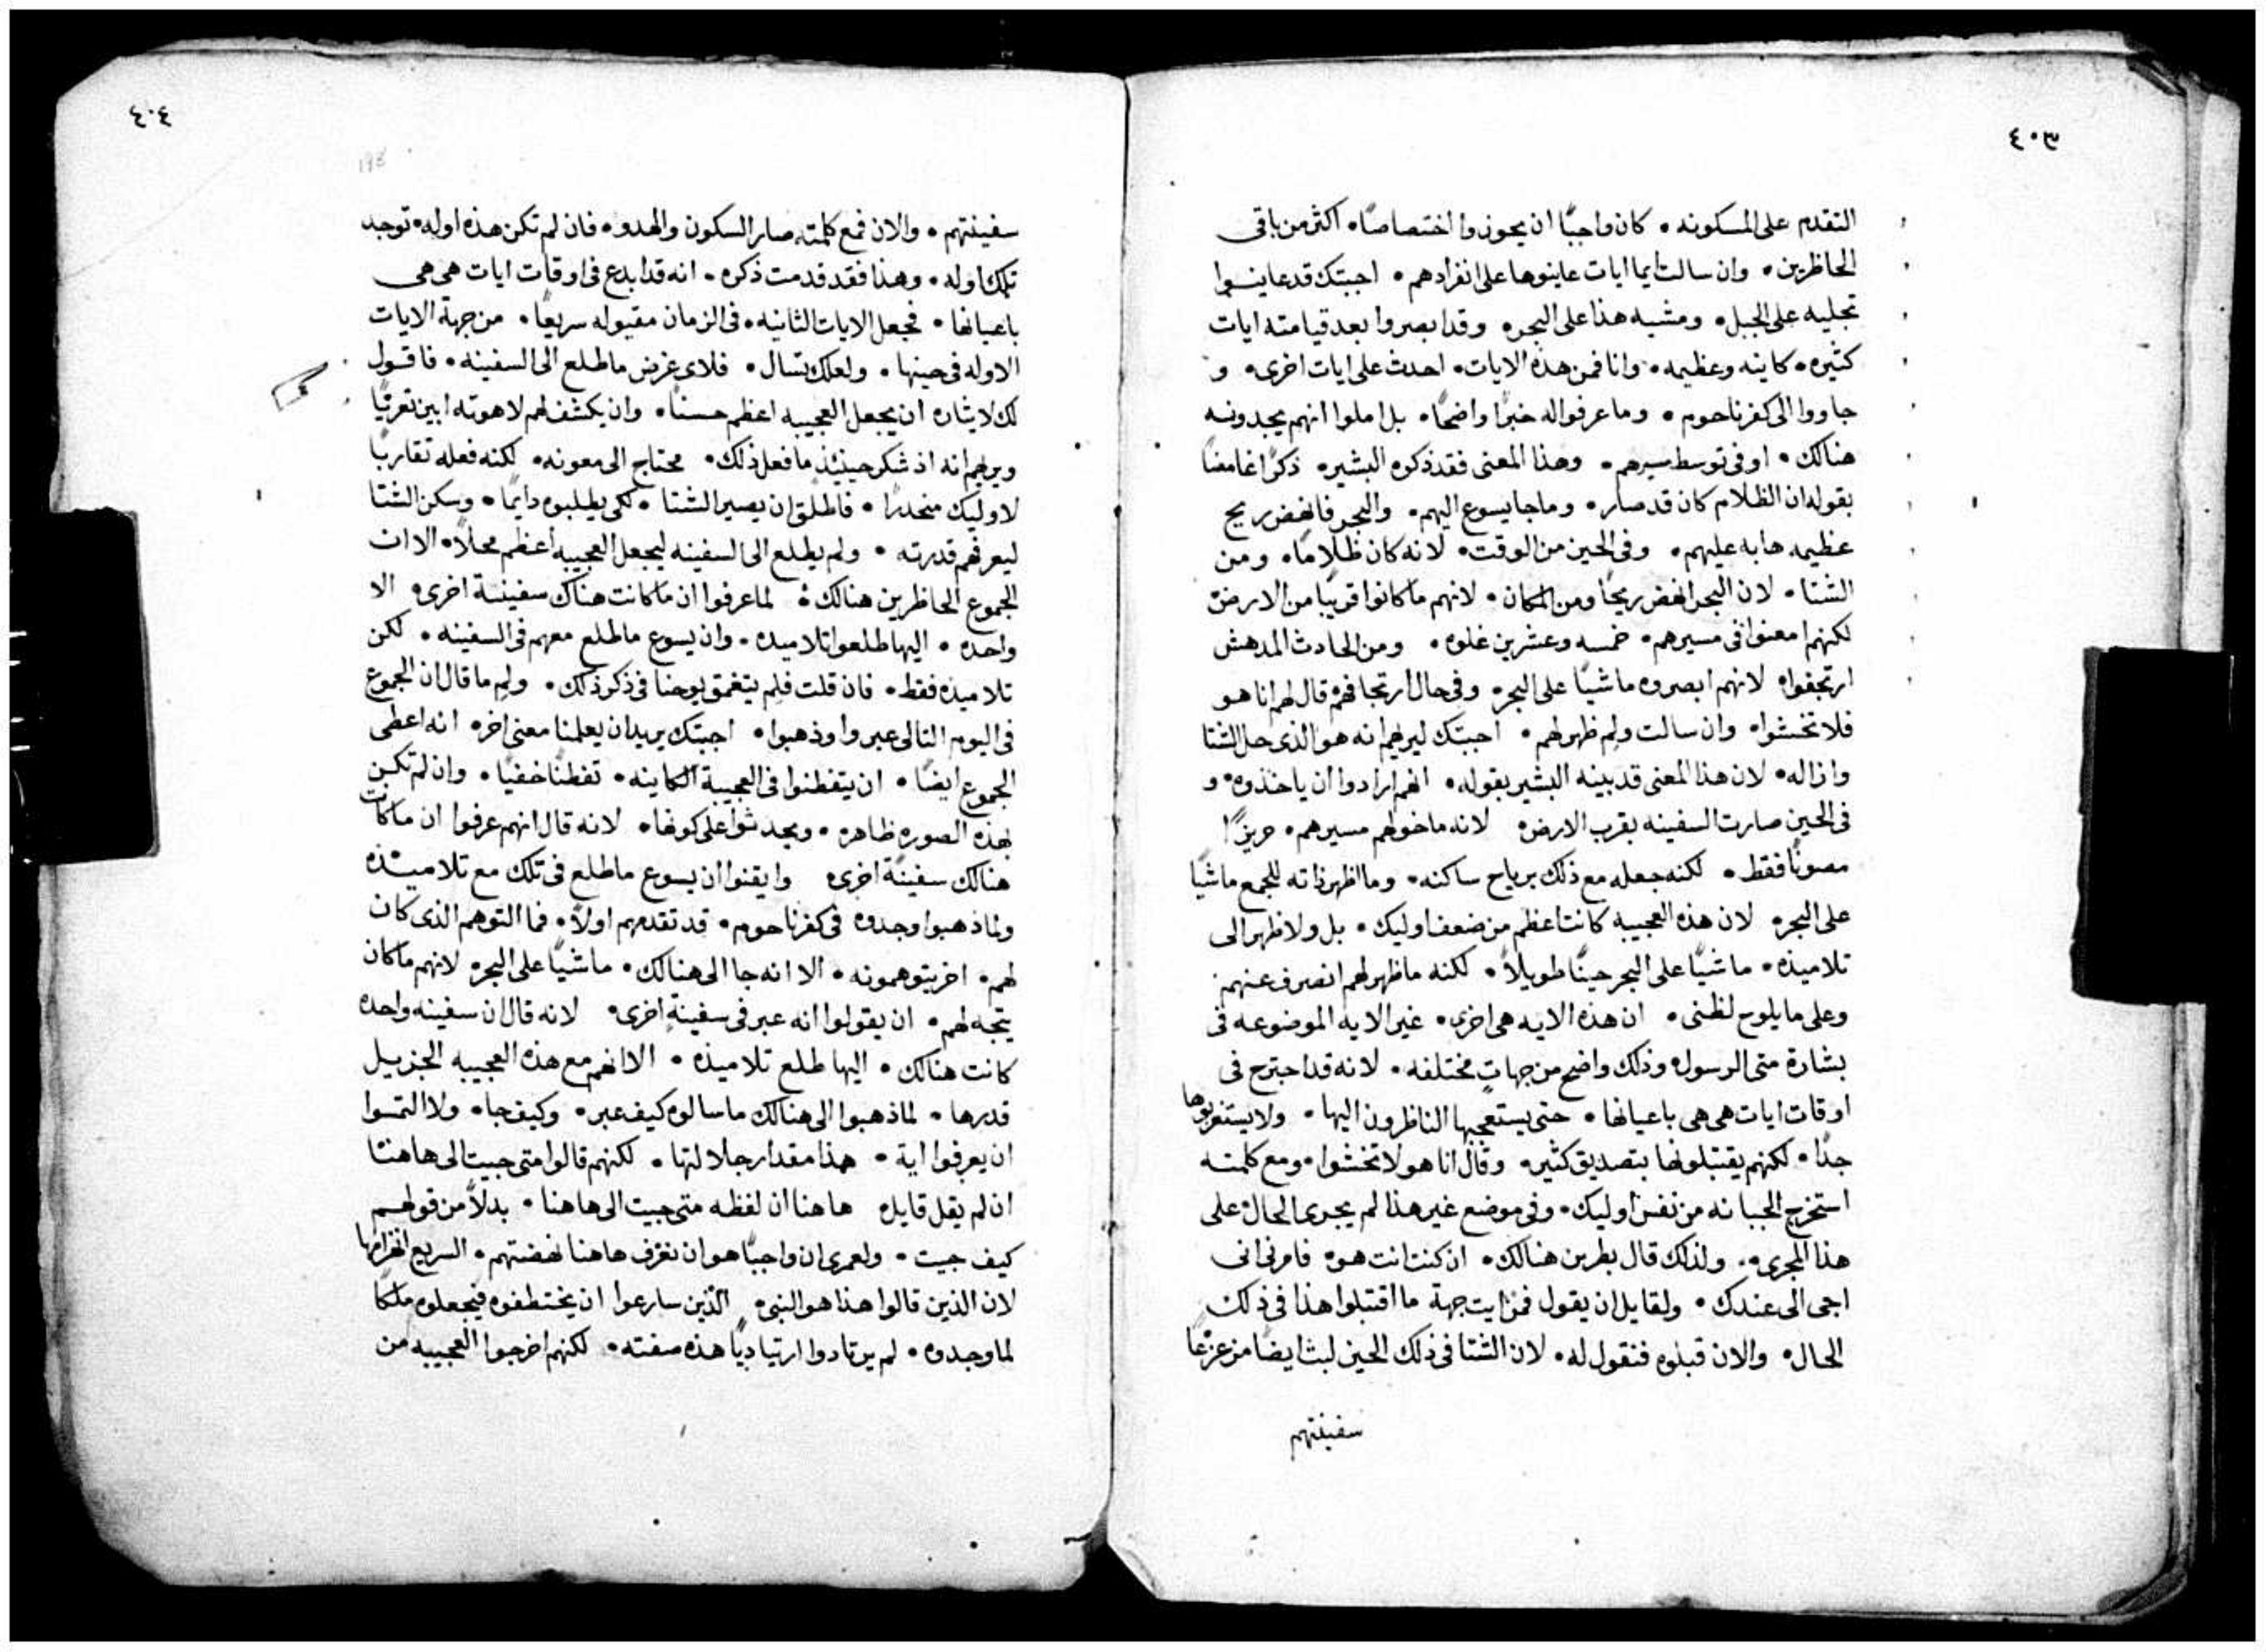 ٤٠٣
التقدم على المسكونه • كان واجبًا ان يحوزوا اختصاصًا • اكثر من باقى
الحاظرين • وان سالت ايما ايات عاينوها على انفرادهم • اجبتك قد عاينوا
تجليه على الجبل • ومشيه هذا على البحر • وقد ابصروا بعد قيامته ايات
كثيره • كاينه وعظيمه • وانا فمن هذه الايات • احدث على ايات اخرى • و
جاووا الى كفرناحوم • وما عرفوا له خبرًا واضحًا • بل املوا انهم يجدونه
هنالك • او فى توسط سيرهم • وهذا المعنى فقد ذكره البشير • ذكرًا غامضًا
بقوله ان الظلام كان قد صار • وما جا يسوع اليهم • والبحر فانهض ريح
عظيمه هابه عليهم • وفى الحين من الوقت • لانه كان ظلامًا • ومن
الشتا • لان البحر انهض ريحًا ومن المكان • لانهم ما كانوا قريبًا من الارض
لكنهم امعنوا فى مسيرهم • خمسه وعشرين غلوه • ومن الحادث المدهش
ارتجفوا • لانهم ابصروه ماشيًا على البحر • وفى حال ارتجافهم قال لهم انا هو
فلا تخشوا • وان سالت ولم ظهر لهم • اجبتك ليريهم انه هو الذى حل الشتا
وازاله • لان هذا المعنى قد بينه البشير بقوله • انهم ارادوا ان ياخذوه • و
فى الحين صارت السفينه بقرب الارض • لانه ما خولهم مسيرهم • حريزًا
مصونًا فقط • لكنه جعله مع ذلك برياح ساكنه • وما اظهر ذاته للجمع ماشيًا
على البحر • لان هذه العجيبه كانت اعظم من ضعف اوليك • بل ولا ظهر الى
تلاميذه • ماشيًا على البحر حينًا طويلاً • لكنه ما ظهر لهم انصرف عنهم
وعلى ما يلوح لظنى • ان هذه الايه هى اخرى • غير الايه الموضوعه فى
بشارة متى الرسول • وذلك واضح من جهات مختلفه • لانه قد اجترح فى
اوقات ايات هى هى باعيانها • حتى يستعجبها الناظرون اليها • ولا يستغربوها
جدًا • لكنهم يقتبلونها بتصديق كثير • وقال انا هو لا تخشوا • ومع كلمته
استخرج الجبانه من نفس اوليك • وفى موضع غير هذا لم يجرى الحال على
هذا المجرى • ولذلك قال بطرس هنالك • ان كنت انت هو • فامرنى انى
اجى الى عندك • ولقايل ان يقول فمن ايت جهة ما اقتبلوا هذا فى ذلك
الحال • والان قبلوه فنقول له • لان الشتا فى ذلك الحين لبث ايضًا مزعزعًا
سفينتهم
٤٠٤
198
سفينتهم • والان فمع كلمته صار السكون والهدو • فان لم تكن هذه اوله • توجد
تلك اوله • وهذا فقد قدمت ذكره • انه قد ابدع فى اوقات ايات هى هى
باعيانها • فجعل الايات الثانيه • فى الزمان مقبوله سريعًا • من جهة الايات
الاوله فى حينها • ولعلك تسال • فلاى غرض ما طلع الى السفينه • فاقول
لك لايثاره ان يجعل العجيبه اعظم حسنًا • وان يكشف لهم لاهوته ابين تعريًا
ويريهم انه اذ شكر حينيذ ما فعل ذلك • محتاج الى معونه • لكنه فعله تقاربًا
لاوليك منحدرًا • فاطلق ان يصير الشتا • لكى يطلبوه دايمًا • وسكن الشتا
ليعرفهم قدرته • ولم يطلع الى السفينه ليجعل العجيبه اعظم محلاً • الا ان
الجموع الحاظرين هنالك • لما عرفوا ان ما كانت هناك سفينة اخرى • الا
واحده • اليها طلعوا تلاميذه • وان يسوع ما طلع معهم فى السفينه • لكن
تلاميذه فقط • فان قلت فلم يتغمق يوحنا فى ذكر ذلك • ولم ما قال ان الجموع
فى اليوم التالى عبروا وذهبوا • اجبتك يريد ان يعلمنا معنى اخر • انه اعطى
الجموع ايضًا • ان يتفطنوا فى العجيبة الكاينه • تفطنًا خفيًا • وان لم تكن
بهذه الصوره ظاهره • ويحدثوا على كونها • لانه قال انهم عرفوا ان ما كانت
هنالك سفينة اخرى • وايقنوا ان يسوع ما طلع فى تلك مع تلاميذه
ولما ذهبوا وجدوه فى كفرناحوم • قد تقدمهم اولاً • فما التوهم الذى كان
لهم • اخر يتوهمونه • الا انه جا الى هنالك • ماشيًا على البحر • لانهم ما كان
يتجه لهم • ان يقولوا انه عبر فى سفينة اخرى • لانه قال ان سفينه واحده
كانت هنالك • اليها طلع تلاميذه • الا انهم مع هذه العجيبه الجزيل
قدرها • لما ذهبوا الى هنالك ما سالوه كيف عبر • وكيف جا • ولا التمسوا
ان يعرفوا اية • هذا مقدار جلالتها • لكنهم قالوا متى جيت الى هاهنا
ان لم يقل قايل • هاهنا ان لفظه متى جيت الى هاهنا • بدلاً من قولهم
كيف جيت • ولعمرى ان واجبًا هو ان نعرف هاهنا نهضتهم • السريع انهزامها
لان الذين قالوا هذا هو النبى • الذين سارعوا ان يختطفوه فيجعلوه ملكًا
لما وجدوه • لم يرتادوا ارتياديًا هذه صفته • لكنهم اخرجوا العجيبه من